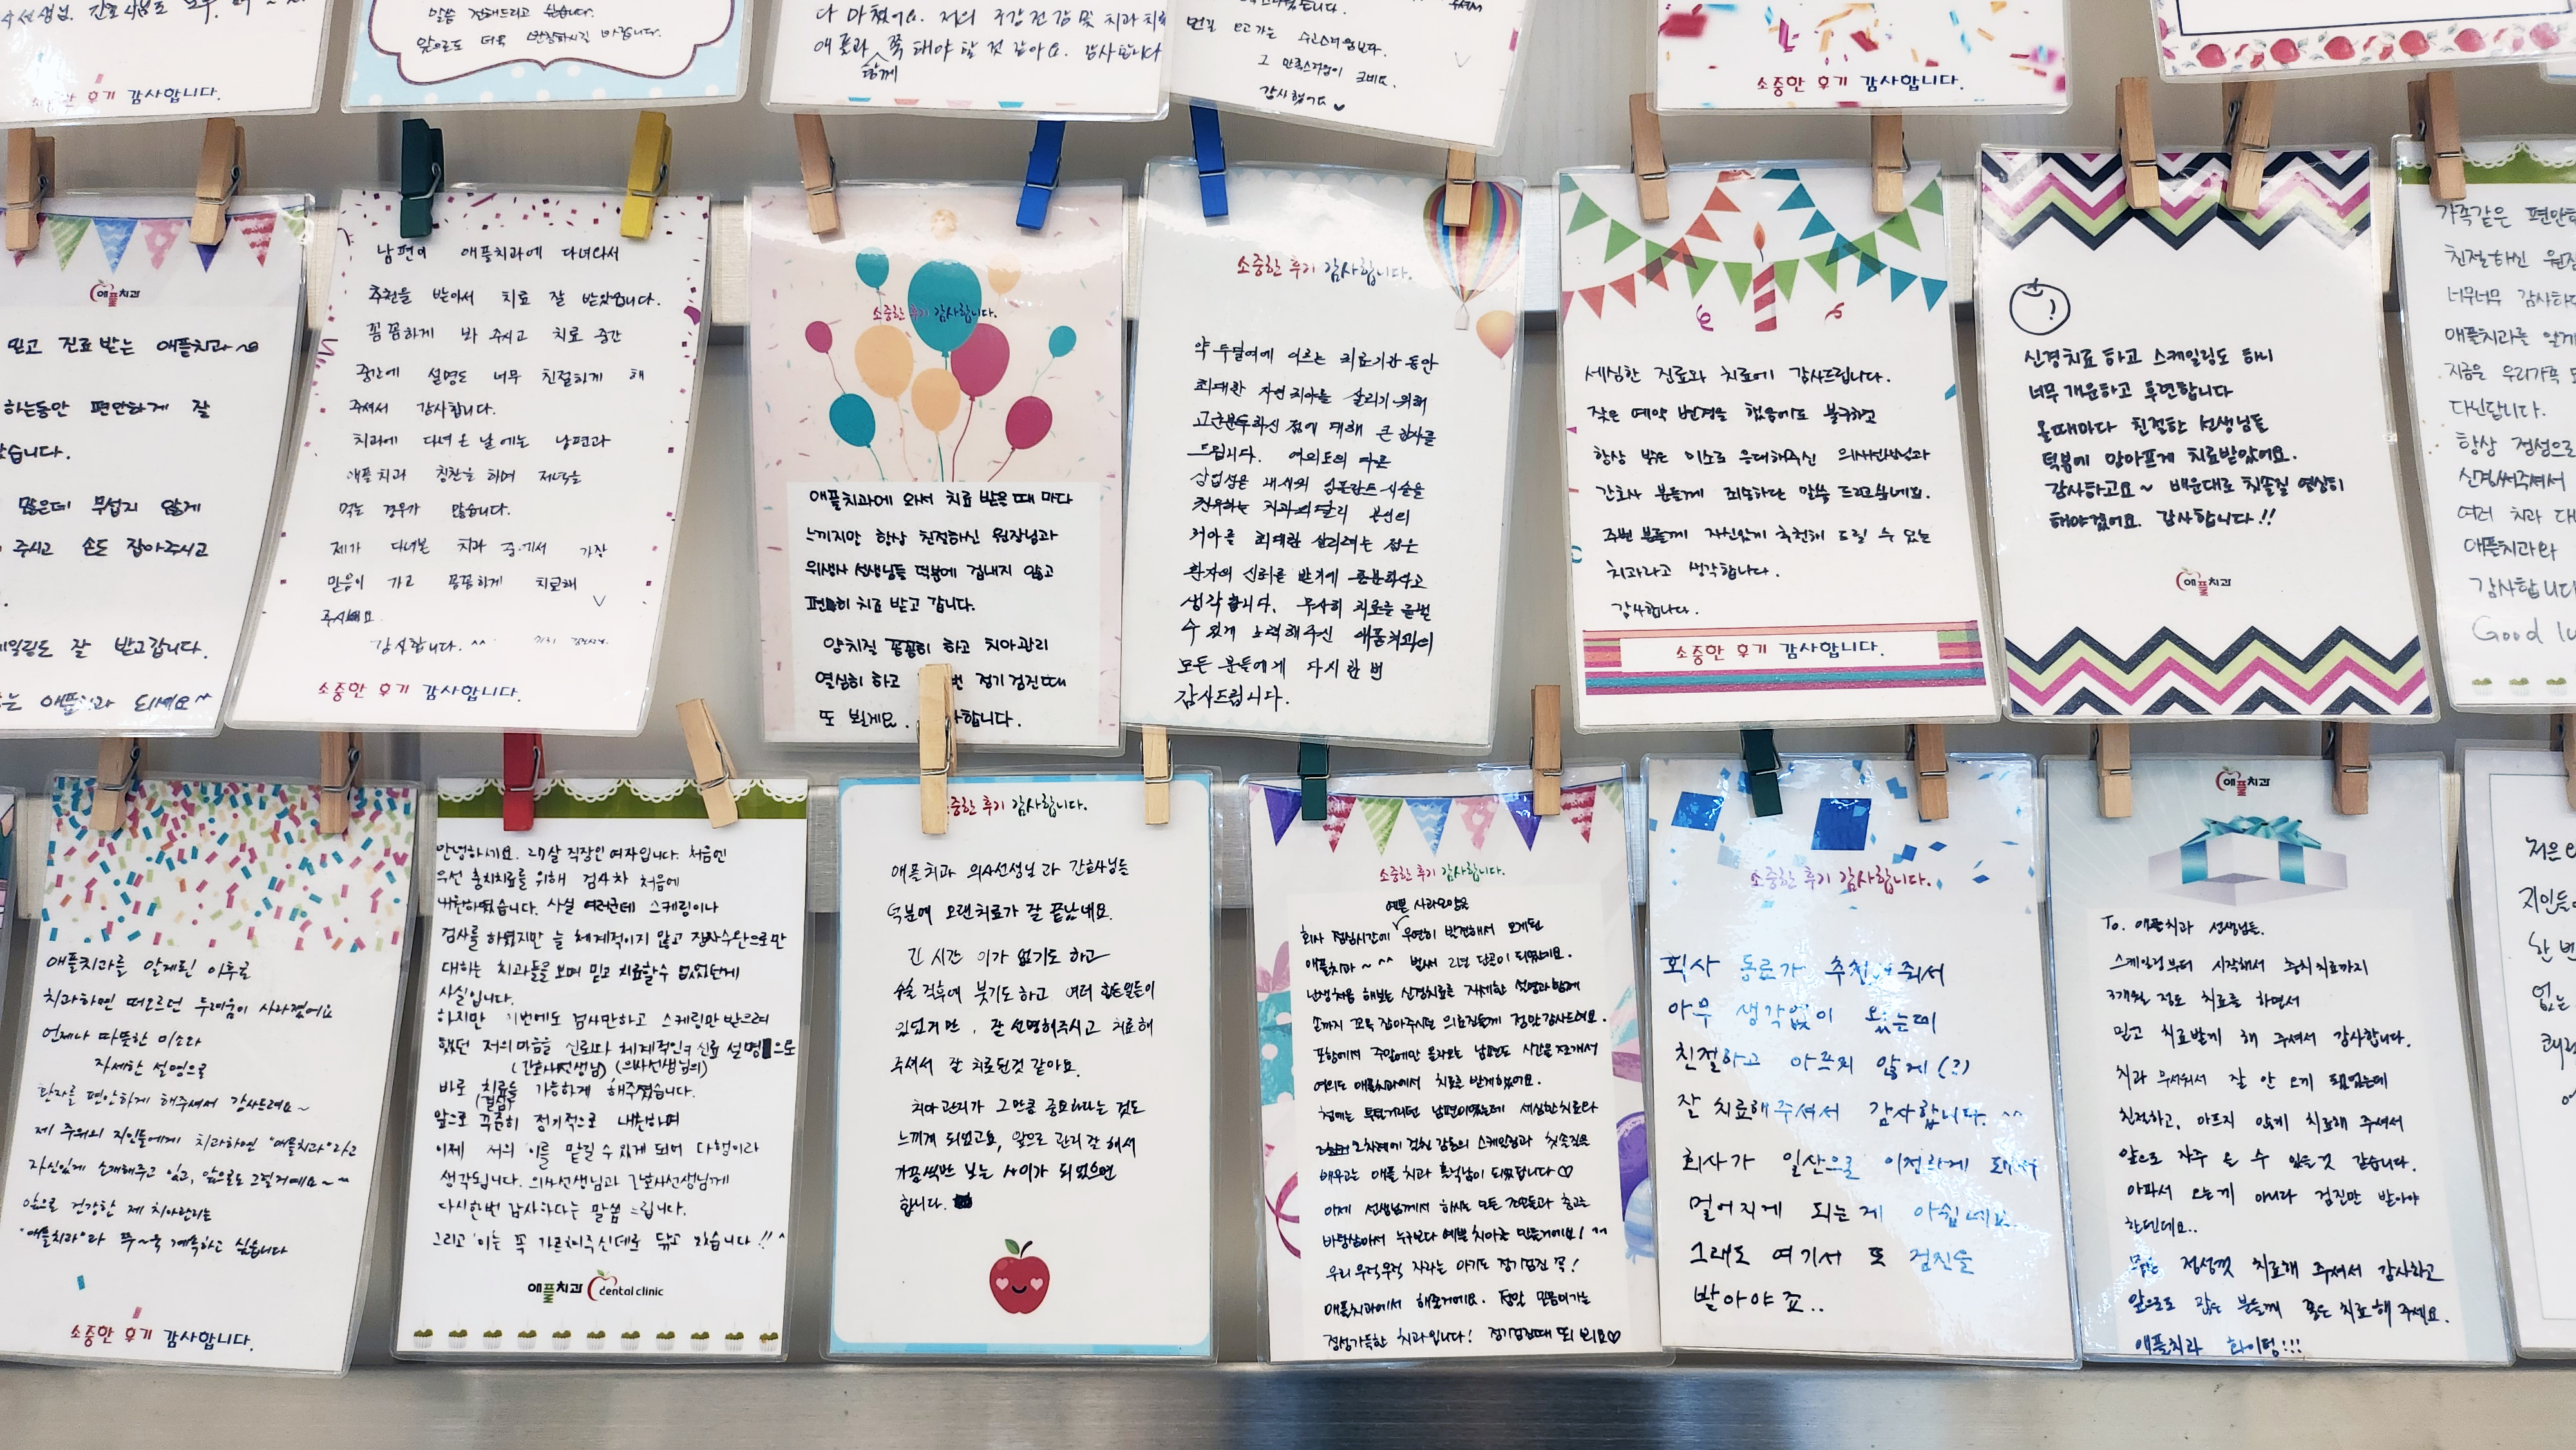 말씀 전해드리고 싶습니다.
앞으로도 더욱 번창하시길 바랍니다.
소중한 후기 감사합니다.
다 마쳤어요. 저의 구강건강 및 치과치료
애플과 함께 쭉 해야 할 것 같아요. 감사합니다
그 만족스러움이 크네요.
감사합니다
소중한 후기 감사합니다.
애플치과
믿고 진료받는 애플치과~
하는동안 편안하게 잘
않습니다.
많은데 무섭지 않게
주시고 손도 잡아주시고
스케일링도 잘 받고갑니다.
애플치과 되세요^^
남편이 애플치과에 다녀와서
추천을 받아서 치료 잘 받았습니다.
꼼꼼하게 봐 주시고 치료 중간
중간에 설명도 너무 친절하게 해
주셔서 감사합니다.
치과에 다녀온 날에는 남편과
애플치과 칭찬을 하며 저녁을
먹는 경우가 많습니다.
제가 다녀본 치과 중에서 가장
믿음이 가고 꼼꼼하게 치료해
주시네요
감사합니다. ^^
소중한 후기 감사합니다.
소중한 후기 감사합니다.
애플치과에 와서 치료 받을 때 마다
느끼지만 항상 친절하신 원장님과
위생사 선생님들 덕분에 겁내지 않고
편히 치료 받고 갑니다.
양치질 꼼꼼히 하고 치아관리
열심히 하고 번 정기검진때
또 뵐게요. 합니다.
소중한 후기 감사합니다.
약 두달여에 이르는 치료기간 동안
최대한 자연치아를 살리기 위해
고군분투하신 점에 대해 큰 감사를
드립니다. 여의도의 다른
상업성을 내세워 임플란트 시술을
권유하는 치과와 달리 본인의
치아를 최대한 살리려는 점은
환자의 신뢰를 받기에 충분하다고
생각합니다. 무사히 치료를 끝낼
수 있게 노력해주신 애플치과의
모든 분들에게 다시 한 번
감사드립니다.
세심한 진료와 치료에 감사드립니다.
잦은 예약 변경을 했음에도 불구하고
항상 밝은 미소로 응대해주신 의사선생님과
간호사 분들께 죄송하단 말씀 드리고싶네요.
주변 분들께 자신있게 추천해 드릴 수 있는
치과라고 생각합니다.
감사합니다.
소중한 후기 감사합니다.
신경치료 하고 스케일링도 하니
너무 개운하고 후련합니다
올때마다 친절한 선생님들
덕분에 안아프게 치료받았어요.
감사하고요~ 배운대로 칫솔질 열심히
해야겠어요. 감사합니다!!
애플치과
가족같은 편안
친절하신 원장
너무너무 감사하
애플치과를 알게
지금은 우리가족
다닌답니다.
항상 정성으로
신경써주셔서
여러 치과
애플치과와
감사합니다
Good
애플치과를 알게된 이후로
치과하면 떠오르던 두려움이 사라졌어요
언제나 따뜻한 미소와
자세한 설명으로
환자를 편안하게 해주셔서 감사드려요~
제 주위의 지인들에게 치과하면 "애플치과"라고
자신있게 소개해주고 있고, 앞으로도 그럴거예요~
앞으로 건강한 제 치아관리는
"애플치과"와 쭈~욱 계속하고 싶습니다
소중한 후기 감사합니다.
안녕하세요. 27살 직장인 여자입니다. 처음엔
우선 충치치료를 위해 검사차 처음에
내원하였습니다. 사실 여러군데 스케링이나
검사를 하였지만 늘 체계적이지 않고 장사수완으로만
대하는 치과들을 보며 믿고 치료할수 없었던게
사실입니다.
하지만 이번에도 검사만하고 스케링만 받으려
했던 저의마음을 신뢰와 체계적인 진료 설명으로
(간호사선생님) (의사선생님의)
바로 치료를 가능하게 해주셨습니다.
(결심)
앞으로 꾸준히 정기적으로 내원하며
이제 저의 이를 맡길 수 있게 되어 다행이라
생각됩니다. 의사선생님과 간호사선생님께
다시한번 감사하다는 말씀 드립니다.
그리고 이는 꼭 가르쳐주신데로 닦고 있습니다!!^
애플치과 dental clinic
소중한 후기 감사합니다.
애플치과 의사선생님과 간호사님들
덕분에 오랜치료가 잘 끝났네요.
긴 시간 이가 없기도 하고
수술 직후에 붓기도하고 여러 힘든일들이
있었지만, 잘 설명해주시고 치료해
주셔서 잘 치료된것 같아요.
치아관리가 그만큼 중요하다는 것도
느끼게 되었고요, 앞으로 관리 잘 해서
가끔씩만 보는 사이가 되었으면
합니다.
소중한 후기 감사합니다.
예쁜 사과모양을
회사 점심시간에 우연히 발견해서 오게된
애플치과~^^ 벌써 2년 단골이 되었네요.
난생처음 해보는 신경치료를 자세한 설명과 함께
손까지 꼬옥 잡아주시던 의료진들께 정말감사드려요.
포항에서 주말에만 올라오는 남편도 시간을 쪼개서
여의도 애플치과에서 치료를 받게하였어요.
첨에는 툴툴거리던 남편이었는데 세심한치료와
2차례에 걸친 감동의 스케일링과 칫솔질을
배우고는 애플 치과 홍보남이 되었답니다♡
이제 선생님께서 하시는 모든 조언들과 충고를
바탕삼아서 누구보다 예쁜 치아를 만들거에요! ^^
우리 무럭무럭 자라는 아기도 정기검진 꼭!
애플치과에서 해줄거에요. 정말 믿음이가는
정성가득한 치과입니다! 정기검진때 또 뵈요♡
소중한 후기 감사합니다.
회사 동료가 추천해줘서
아무 생각없이 왔는데
친절하고 아프지 않게(?)
잘 치료해주셔서 감사합니다.^^
회사가 일산으로 이전하게 돼서
멀어지게 되는게 아쉽네요.
그래도 여기서 또 검진을
받아야죠..
애플치과
To. 애플치과 선생님들.
스케일링부터 시작해서 충치치료까지
3개월 정도 치료를 하면서
믿고 치료받게 해 주셔서 감사합니다.
치과 무서워서 잘 안 오게 되었는데
친절하고, 아프지 않게 치료해 주셔서
앞으로 자주 올 수 있을것 같습니다.
아파서 오는게 아니라 검진만 받아야
한텐데요..
정성껏 치료해 주셔서 감사하고
앞으로도 많은 분들께 좋은 치료해 주세요.
애플치과 화이팅!!!
저은
지인들
한 번
없는